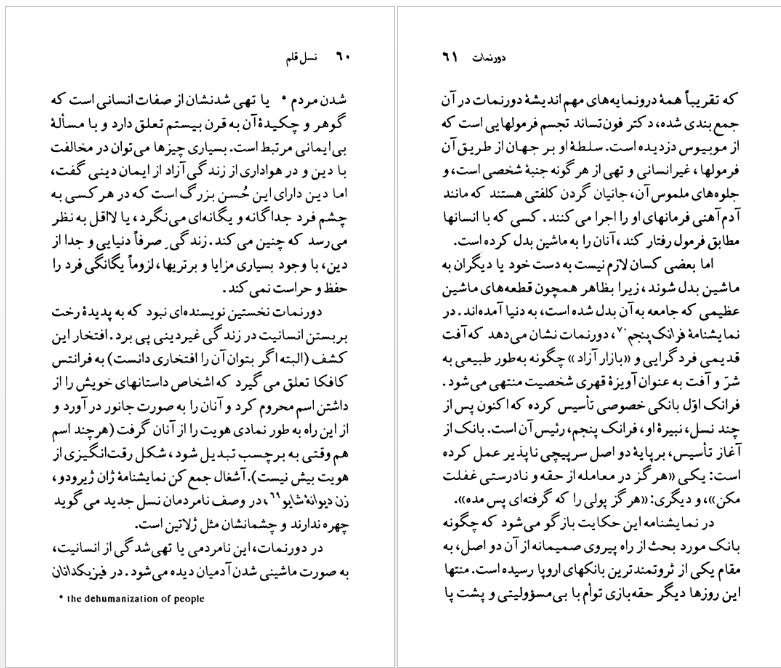 ۶۰ نسل قلم
شدن مردم * یا تهی شدنشان از صفات انسانی است که
گوهر و چکیدهٔ آن به قرن بیستم تعلق دارد و با مسألهٔ
بی‌ایمانی مرتبط است. بسیاری چیزها می‌توان در مخالفت
با دین و در هواداری از زندگی آزاد از ایمان دینی گفت،
اما دین دارای این حُسن بزرگ است که در هر کسی به
چشم فرد جداگانه و یگانه‌ای می‌نگرد، یا لااقل به نظر
می‌رسد که چنین می‌کند. زندگیِ صرفاً دنیایی و جدا از
دین، با وجود بسیاری مزایا و برتریها، لزوماً یگانگی فرد را
حفظ و حراست نمی‌کند.
دورنمات نخستین نویسنده‌ای نبود که به پدیدهٔ رخت
بربستن انسانیت در زندگی غیردینی پی برد. افتخار این
کشف (البته اگر بتوان آن را افتخاری دانست) به فرانتس
کافکا تعلق می‌گیرد که اشخاص داستانهای خویش را از
داشتن اسم محروم کرد و آنان را به صورت جانور در آورد و
از این راه به طور نمادی هویت را از آنان گرفت (هرچند اسم
هم وقتی به برچسب تبدیل شود، شکل رقت‌انگیزی از
هویت بیش نیست). آشغال جمع کن نمایشنامهٔ ژان ژیرودو،
زن دیوانهٔ شایو۶۹، در وصف نامردمان نسل جدید می‌گوید
چهره ندارند و چشمانشان مثل ژلاتین است.
در دورنمات، این نامردمی یا تهی‌شدگی از انسانیت،
به صورت ماشینی شدن آدمیان دیده می‌شود. در فیزیکدانان
* the dehumanization of people
دورنمات ۶۱
که تقریباً همهٔ درونمایه‌های مهم اندیشهٔ دورنمات در آن
جمع‌بندی شده، دکتر فون‌تساند تجسم فرمولهایی است که
از موبیوس دزدیده است. سلطهٔ او بر جهان از طریق آن
فرمولها، غیرانسانی و تهی از هرگونه جنبهٔ شخصی است، و
جلوه‌های ملموس آن، جانیان گردن کلفتی هستند که مانند
آدم‌آهنی فرمانهای او را اجرا می‌کنند. کسی که با انسانها
مطابق فرمول رفتار کند، آنان را به ماشین بدل کرده است.
اما بعضی کسان لازم نیست به دست خود یا دیگران به
ماشین بدل شوند، زیرا بظاهر همچون قطعه‌های ماشین
عظیمی که جامعه به آن بدل شده است، به دنیا آمده‌اند. در
نمایشنامهٔ فرانک پنجم۷۰، دورنمات نشان می‌دهد که آفت
قدیمی فردگرایی و «بازار آزاد» چگونه به‌طور طبیعی به
شرّ و آفت به عنوان آویزهٔ قهری شخصیت منتهی می‌شود.
فرانک اوّل بانکی خصوصی تأسیس کرده که اکنون پس از
چند نسل، نبیرهٔ او، فرانک پنجم، رئیس آن است. بانک از
آغاز تأسیس، برپایهٔ دو اصل سرپیچی ناپذیر عمل کرده
است: یکی «هرگز در معامله از حقه و نادرستی غفلت
مکن»، و دیگری: «هرگز پولی را که گرفته‌ای پس مده».
در نمایشنامه این حکایت بازگو می‌شود که چگونه
بانک مورد بحث از راه پیروی صمیمانه از آن دو اصل، به
مقام یکی از ثروتمندترین بانکهای اروپا رسیده است. منتها
این روزها دیگر حقه‌بازی توأم با بی‌مسؤولیتی و پشت پا